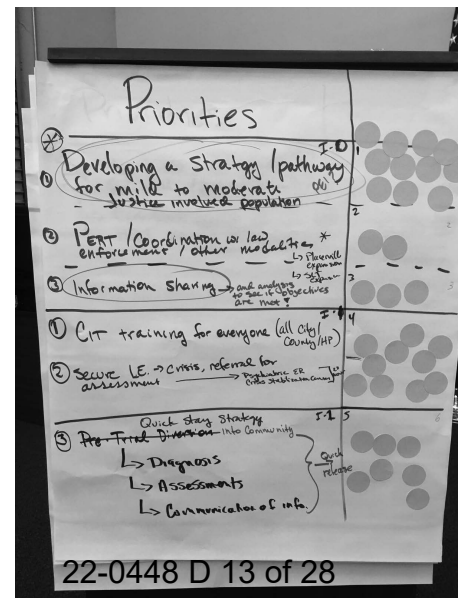 Priorities
I-0
1
① Developing a Stratgy / pathway
for mild to moderate
Justice involved population
2
② PERT / Coordination w/ law *
enforcement / other modalities
↳ Placement expansion
③ Information Sharing → and analysis
to see if objectives
are met?
3
I-1 4
① CIT training for everyone (all City/
County/HP)
② Secure I.E. → Crisis, referral for
assessment → Psychiatric ER
Crisis Stabilization
Quick Stay Strategy
I-2 5
③ Pre-Trial Diversion into Community
↳ Diagnosis
↳ Assessments
↳ Communication of info.
Quick
release
22-0448 D 13 of 28